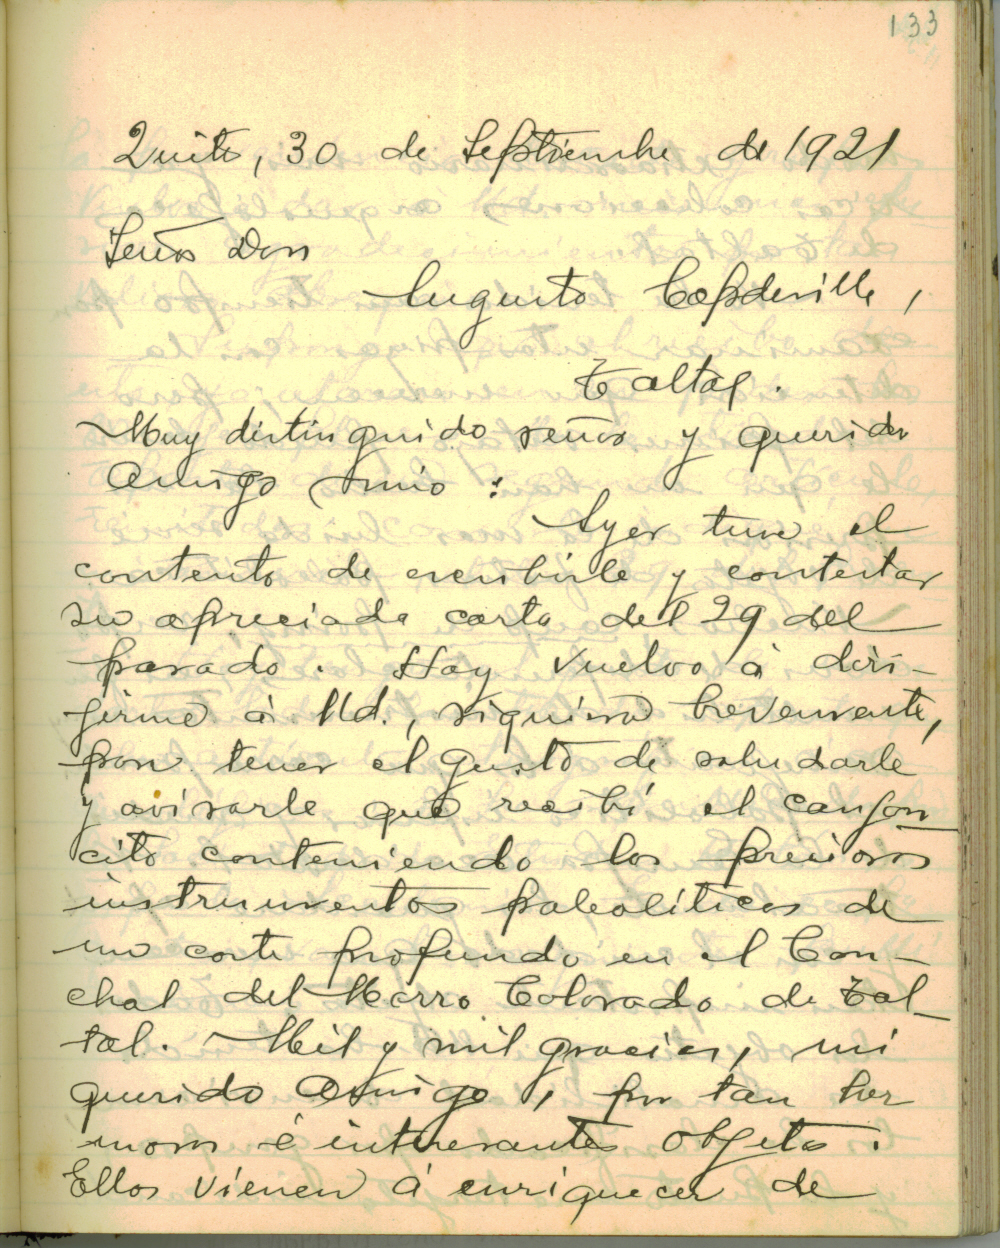 133
Quito, 30 de Septiembre de 1921
Señor Don
Augusto Capdeville,
Taltal.
Muy distinguido señor y querido
amigo mio:
Ayer tuve el
contento de escribirle y contestar
su apreciada carta del 29 del
pasado. Hoy vuelvo á diri-
girme á Ud., siquiera brevemente,
para tener el gusto de saludarle
y avisarle que recibí el cajon
cito conteniendo los preciosos
instrumentos paleolíticos de
un corte profundo en el Con-
chal del Morro Colorado de Tal-
tal. Mil y mil gracias, mi
querido amigo, por tan her
mosos é interesantes objetos:
Ellos vienen á enriquecer de